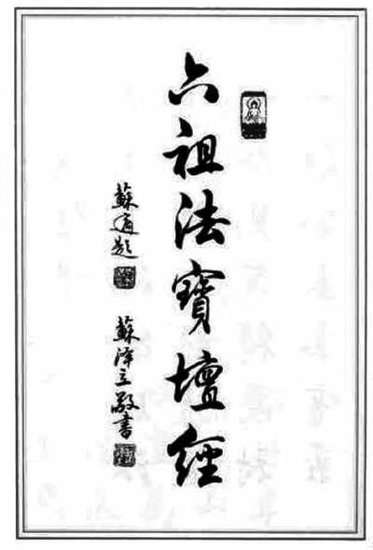 六祖法寶壇經
蘇適題
蘇澤立敬書